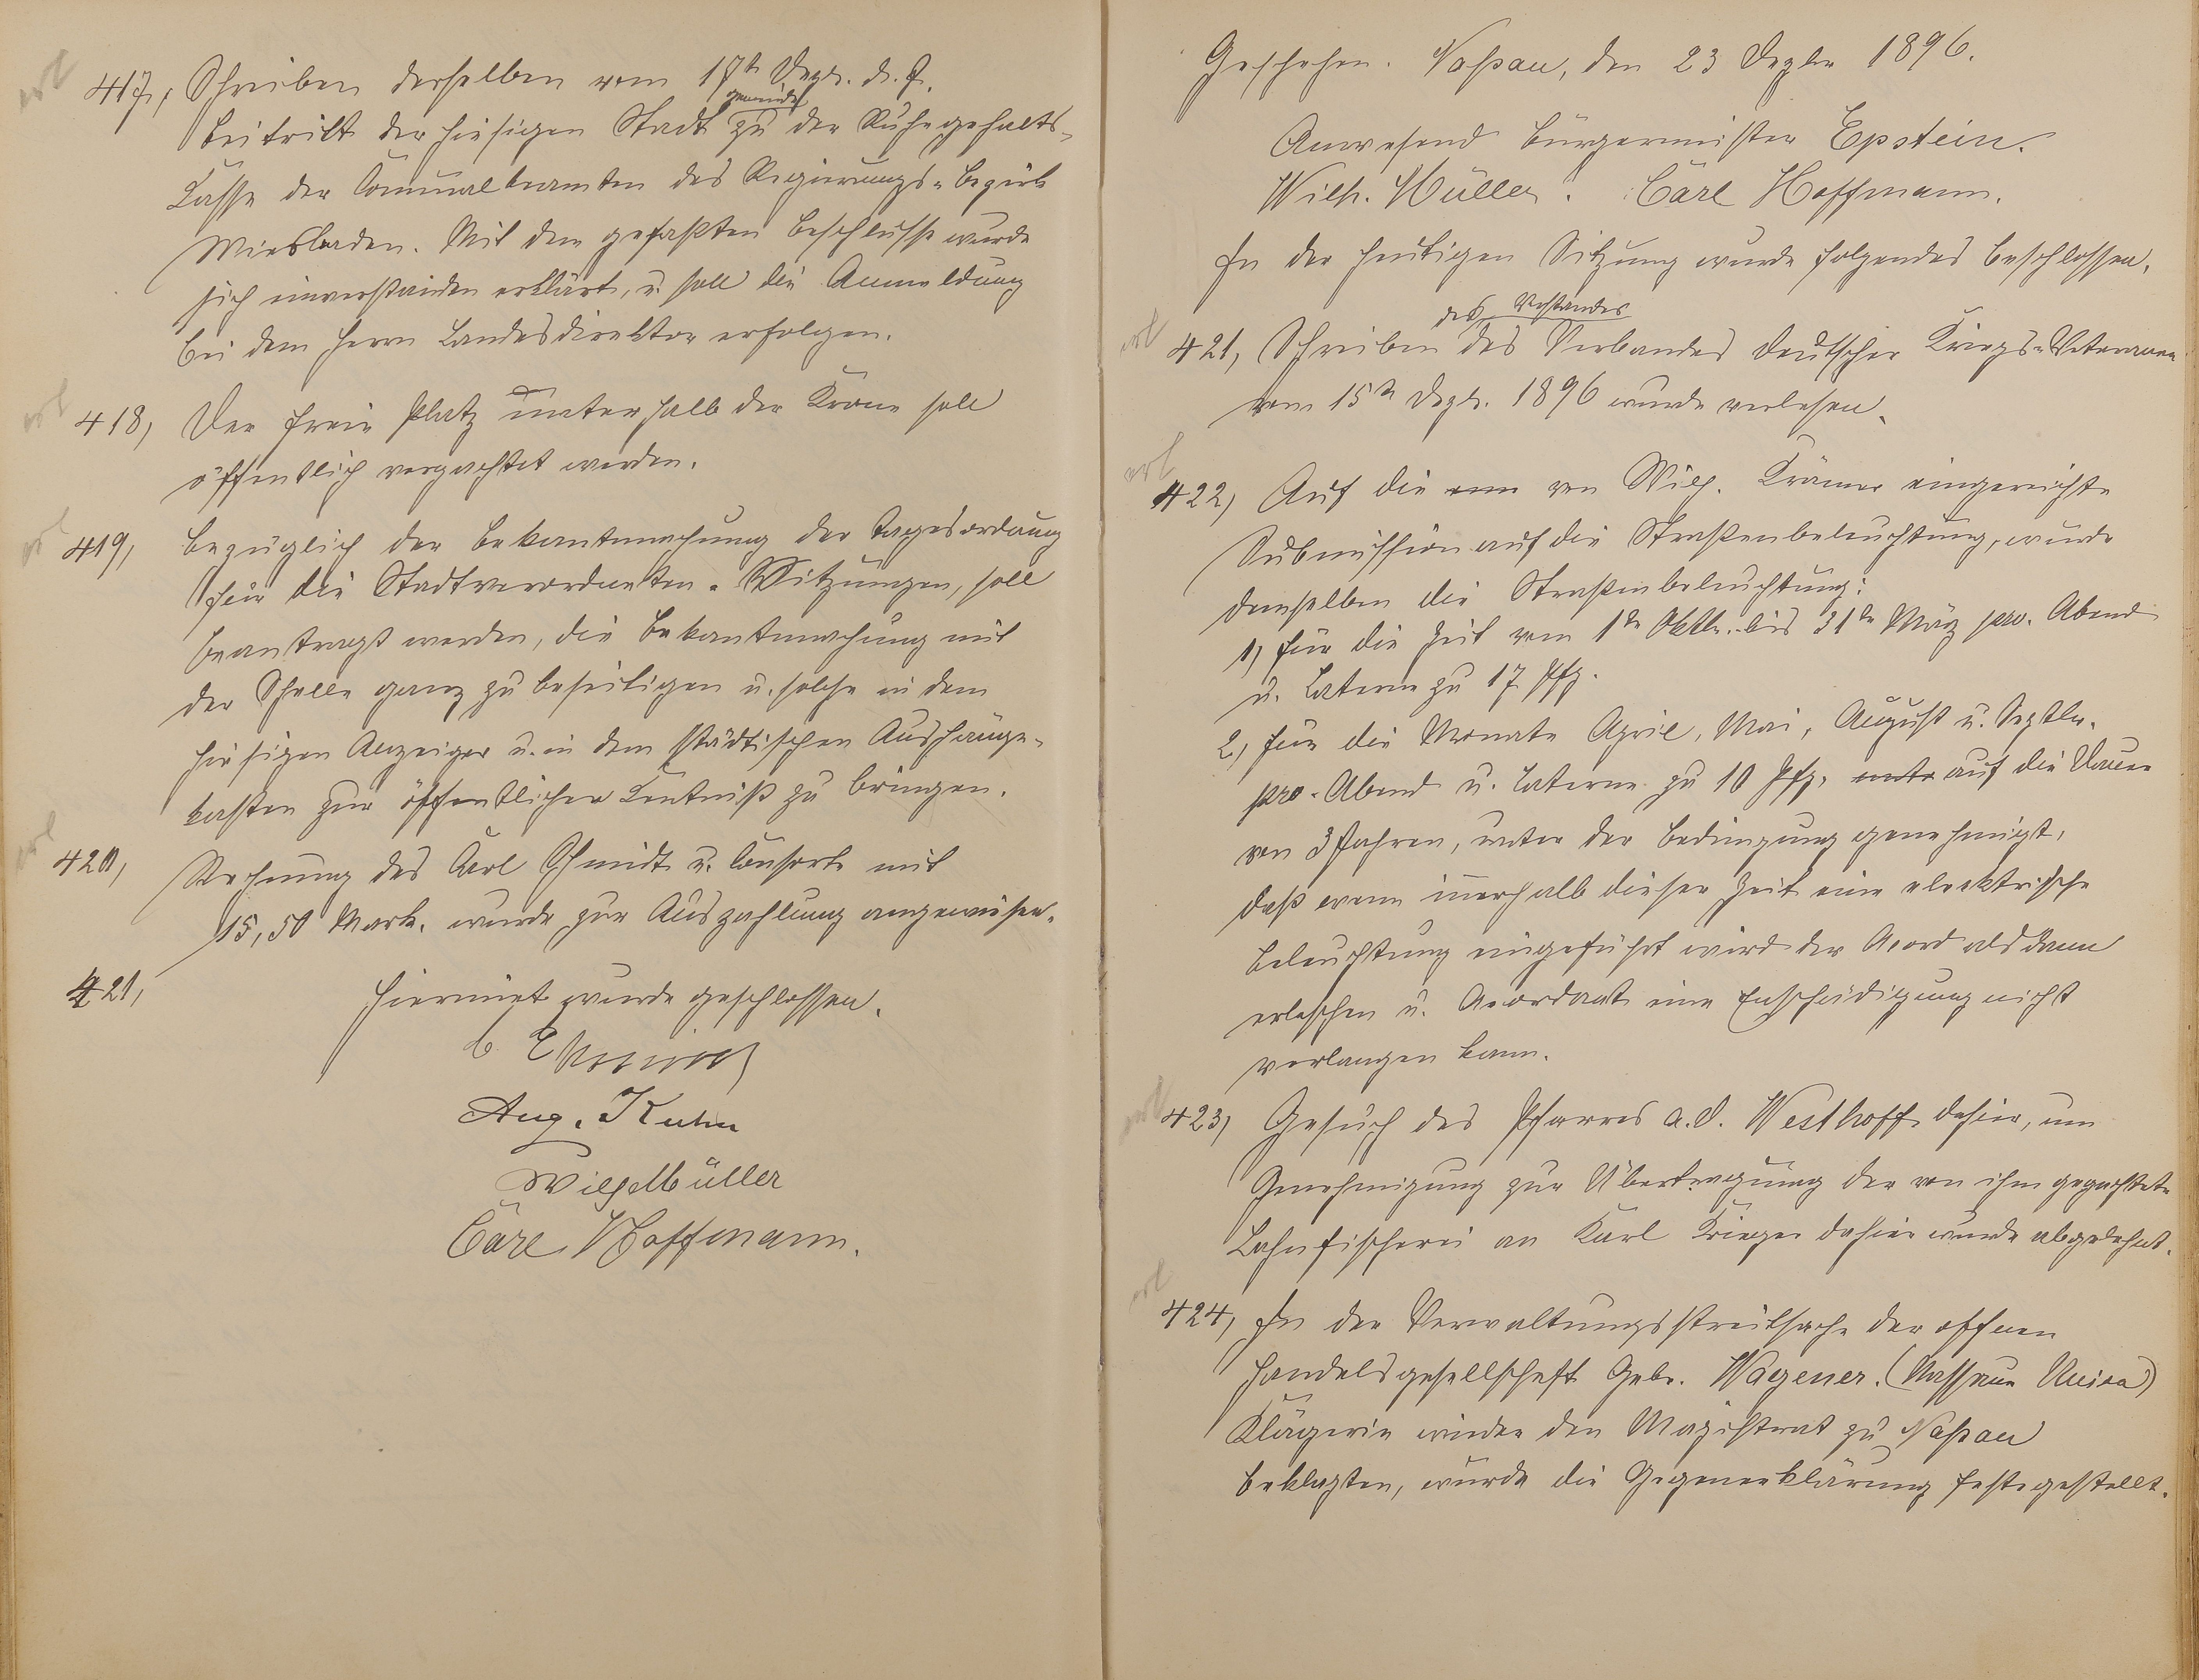 erl
417, Schreiben desselben vom 17ts Dezbr. d. J.
gemeinde
Beitritt der hiesigen Stadt zu der Ruhegehalts-
Kasse der Communalbeamten des Regierungs-Bezirk
Wiesbaden. Mit dem gefaßten Beschlusse wurde
sich einverstanden erklärt, u. soll die Anmeldung
bei dem Herrn Landesdirektor erfolgen.
erl
418, Der freie Platz unterhalb der Krone soll
öffentlich verpachtet werden.
erl
419, Bezüglich der Bekantmachung der Tagesordnung
für die Stadtverordneten-Sitzungen, soll
beantragt werden, die Bekantmachung mit
der Schelle ganz zu beseitigen u. solche in dem
hiesigen Anzeiger u. in dem städtischen Aushänge-
kasten zur öffentlichen Kentniß zu bringen.
erl
420, Rechnung des Carl Schmidt u. Consorte mit
15,50 Mark. wurde zur Auszahlung angewiesen.
421, Hiermit wurde geschlossen.
Aug. Kuhn
Wilh Müller
Carl Hoffmann.
Geschehen. Naßau, den 23 Dezbr 1896.
Anwesend Bürgermeister Epstein.
Wilh. Müller. Carl Hoffmann.
In der heutigen Sitzung wurde folgendes beschlossen.
des Vorstandes
erl
421, Schreiben des Verbandes deutscher Kriegs-Veteranen
vom 15ts Dezbr. 1896 wurde verlesen.
erl
422, Auf die von Wilh. Krämer eingereichte
Submission auf die Straßenbeleuchtung, wurde
demselben die Straßenbeleuchtung:
1, für die Zeit vom 1ten Oktbr. bis 31ten März pro. Abend
u. Laterne zu 17 Pfg.
2, für die Monate April, Mai, August u. Septbr.
pro. Abend u. Laterne zu 10 Pfg. auf die Dauer
von 3 Jahren, unter der Bedingung genehmigt,
daß wenn innerhalb dieser Zeit eine elecktrische
Beleuchtung eingeführt wird der Acord alsdann
erloschen u. Acordant eine Enschädigung nicht
verlangen kann.
erl
423, Gesuch des Pfarres a. D. Westhoff dahier, um
Genehmigung zur Übertragung der von ihm gepachtete
Lahnfischerei an Karl Krieger dahier wurde abgelehnt.
erl
424, In der Verwaltungsstreitsache der offnen
Handelsgesellschaft Gebr. Wagener. (Nassau
Klägerin wieder den Magistrat zu Naßau
Beklagten, wurde die Gegenerklärung festgestellt.